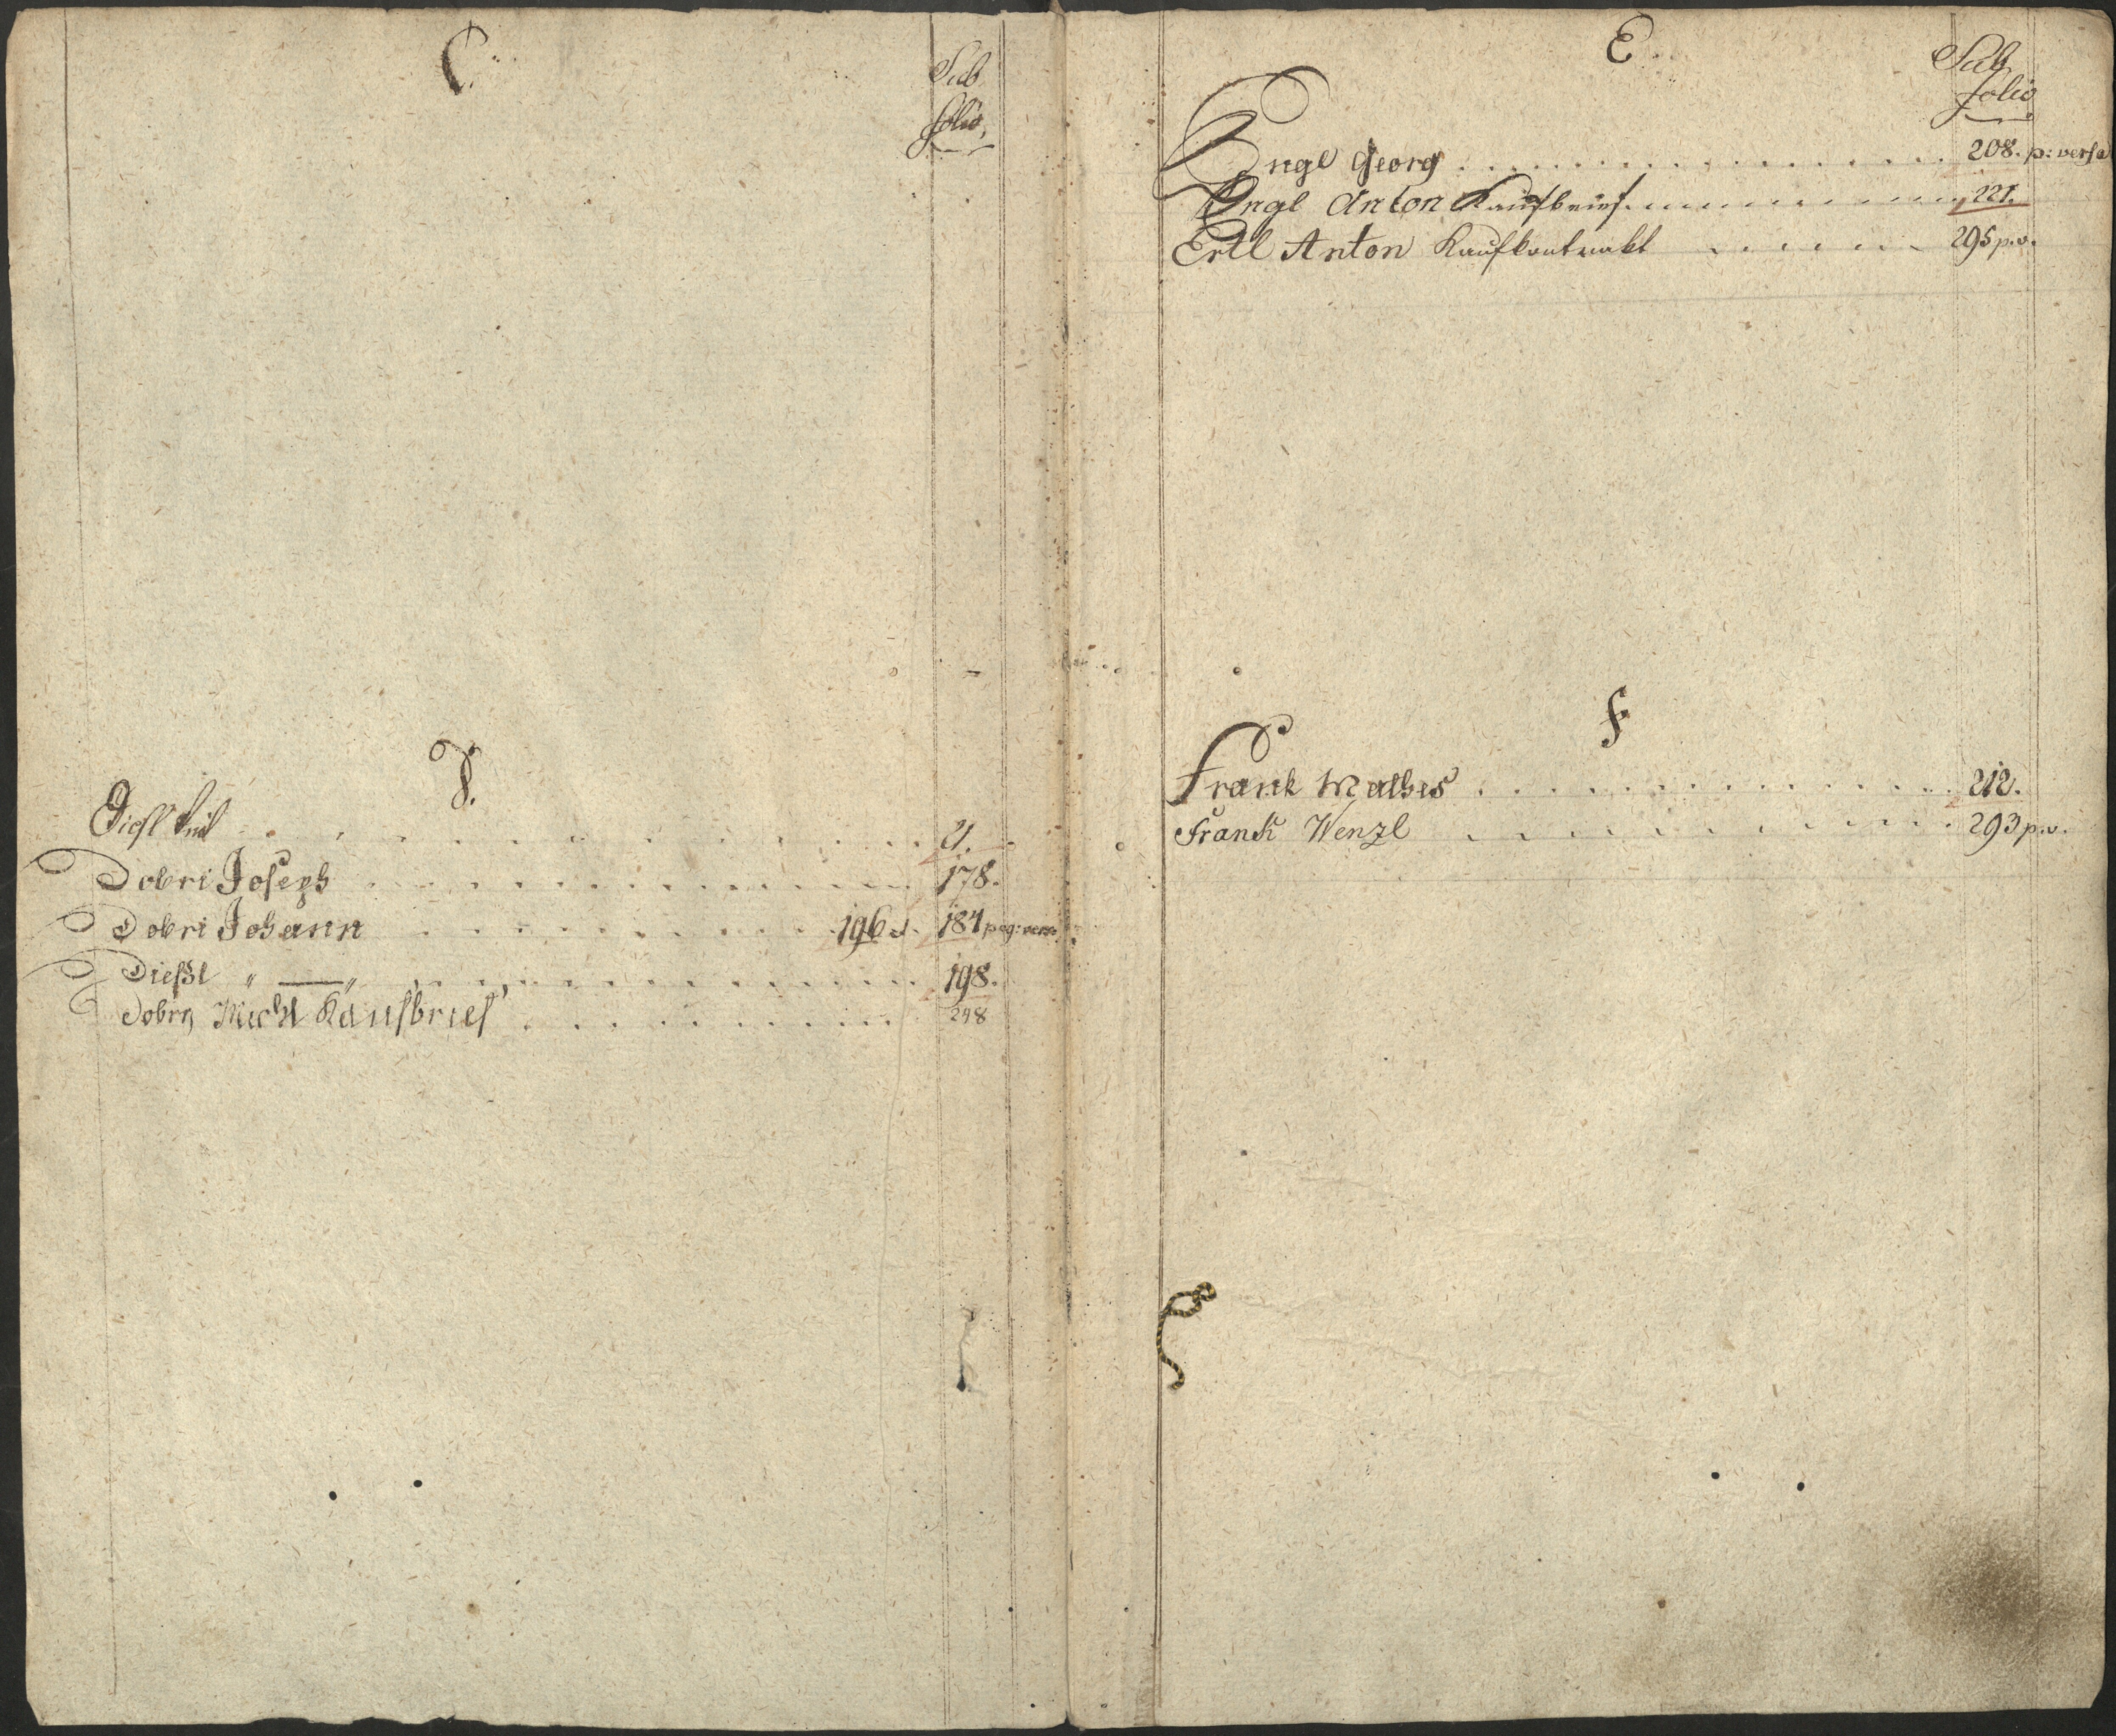 C.
Sub
folio,
D.
Diesl Veit . . . . 21.
Dobri Joseph . . . . 178.
Dobri Johann . . . . 196 et 184 pag: vers:
Dießl " — " . . . . 198.
Dobry Michl Kaufbrief . . . . 248
E.
Sub
folio
Engl Georg . . . . 208. p: versa
Engl Anton Kaufbrief . . . . 221.
Ertl Anton Kaufkontrakt . . . . 295 p. v.
F
Frank Mathes . . . . 212.
Franck Wenzl . . . . 293 p. v.